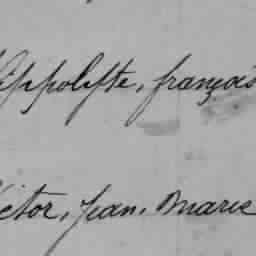 Hippolyte, françois
Victor, Jean, Marie